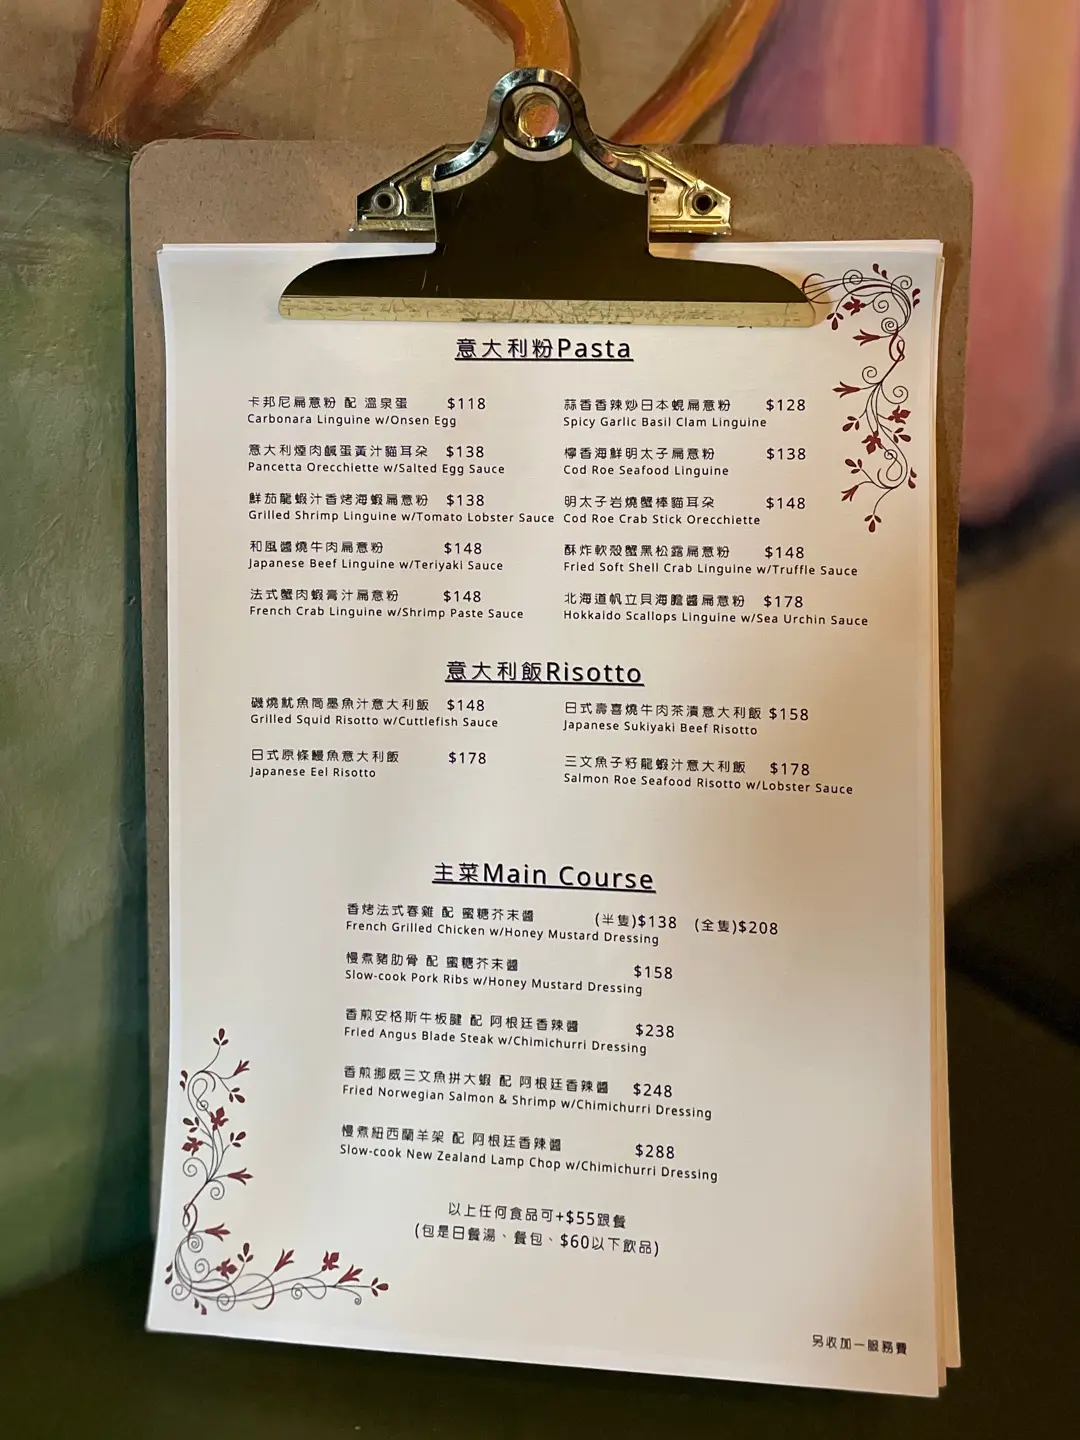 意大利粉Pasta
卡邦尼扁意粉 配 溫泉蛋 $118
Carbonara Linguine w/Onsen Egg
意大利煙肉鹹蛋黃汁貓耳朵 $138
Pancetta Orecchiette w/Salted Egg Sauce
鮮茄龍蝦汁香烤海蝦扁意粉 $138
Grilled Shrimp Linguine w/Tomato Lobster Sauce
和風醬燒牛肉扁意粉 $148
Japanese Beef Linguine w/Teriyaki Sauce
法式蟹肉蝦膏汁扁意粉 $148
French Crab Linguine w/Shrimp Paste Sauce
蒜香香辣炒日本蜆扁意粉 $128
Spicy Garlic Basil Clam Linguine
檸香海鮮明太子扁意粉 $138
Cod Roe Seafood Linguine
明太子岩燒蟹棒貓耳朵 $148
Cod Roe Crab Stick Orecchiette
酥炸軟殼蟹黑松露扁意粉 $148
Fried Soft Shell Crab Linguine w/Truffle Sauce
北海道帆立貝海膽醬扁意粉 $178
Hokkaido Scallops Linguine w/Sea Urchin Sauce
意大利飯Risotto
磯燒魷魚筒墨魚汁意大利飯 $148
Grilled Squid Risotto w/Cuttlefish Sauce
日式原條鰻魚意大利飯 $178
Japanese Eel Risotto
日式壽喜燒牛肉茶漬意大利飯 $158
Japanese Sukiyaki Beef Risotto
三文魚子籽龍蝦汁意大利飯 $178
Salmon Roe Seafood Risotto w/Lobster Sauce
主菜Main Course
香烤法式春雞 配 蜜糖芥末醬 (半隻)$138 (全隻)$208
French Grilled Chicken w/Honey Mustard Dressing
慢煮豬肋骨 配 蜜糖芥末醬 $158
Slow-cook Pork Ribs w/Honey Mustard Dressing
香煎安格斯牛板腱 配 阿根廷香辣醬 $238
Fried Angus Blade Steak w/Chimichurri Dressing
香煎挪威三文魚拼大蝦 配 阿根廷香辣醬 $248
Fried Norwegian Salmon & Shrimp w/Chimichurri Dressing
慢煮紐西蘭羊架 配 阿根廷香辣醬 $288
Slow-cook New Zealand Lamp Chop w/Chimichurri Dressing
以上任何食品可+$55跟餐
(包是日餐湯、餐包、$60以下飲品)
另收加一服務費